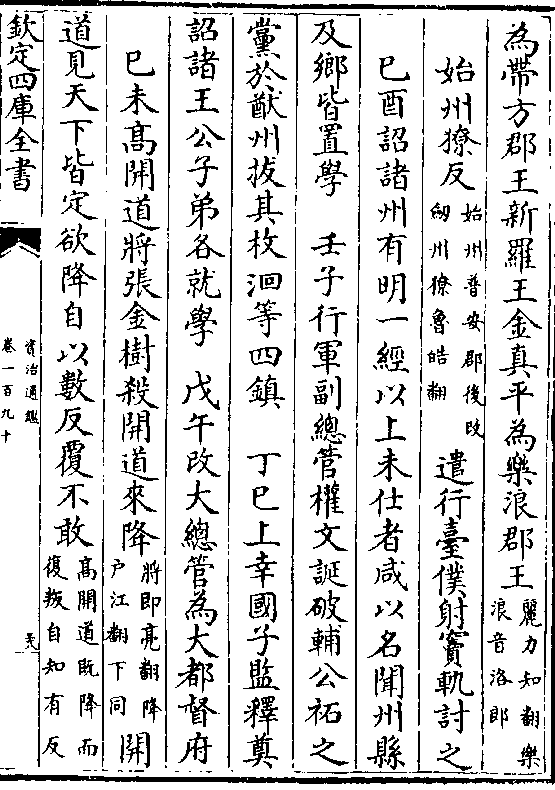 為帶方郡王新羅王金真平為樂浪郡王麗力知翻樂
浪音洛郎
始州獠反始州普安郡後改
劒州獠魯皓翻遣行臺僕射竇軌討之
巳酉詔諸州有明一經以上未仕者咸以名聞州縣
及鄉皆置學 壬子行軍副總管權文誕破輔公祏之
黨於猷州拔其枚洄等四鎮 丁巳上幸國子監釋奠
詔諸王公子弟各就學 戊午改大總管為大都督府
巳未髙開道將張金樹殺開道來降將即亮翻降
户江翻下同開
道見天下皆定欲降自以數反覆不敢髙開道既降而
復叛自知有反
欽定四庫全書
資治通鑑
卷一百九十